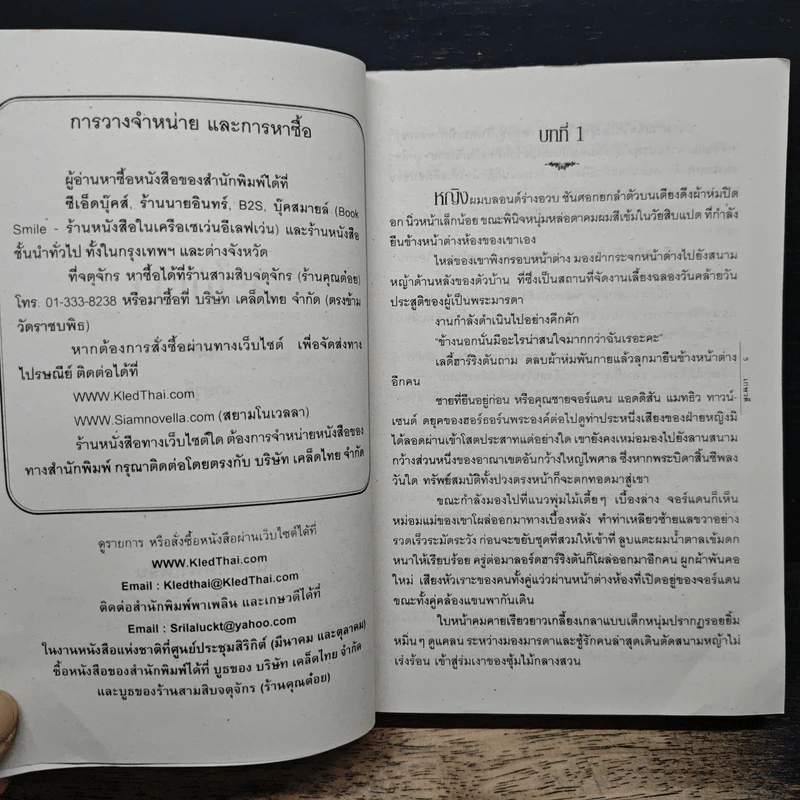 การวางจำหน่าย และการหาซื้อ
ผู้อ่านหาซื้อหนังสือของสำนักพิมพ์ได้ที่
ซีเอ็ดบุ๊คส์, ร้านนายอินทร์, B2S, บุ๊คสมายล์ (Book
Smile - ร้านหนังสือในเครือเซเว่นอีเลฟเว่น) และร้านหนังสือ
ชั้นนำทั่วไป ทั้งในกรุงเทพฯ และต่างจังหวัด
ที่จตุจักร หาซื้อได้ที่ร้านสามสิบจตุจักร (ร้านคุณต๋อย)
โทร. 01-333-8238 หรือมาซื้อที่ บริษัท เคล็ดไทย จำกัด (ตรงข้าม
วัดราชบพิธ)
หากต้องการสั่งซื้อผ่านทางเว็บไซต์ เพื่อจัดส่งทาง
ไปรษณีย์ ติดต่อได้ที่
WWW.KledThai.com
WWW.Siamnovella.com (สยามโนเวลลา)
ร้านหนังสือทางเว็บไซต์ใด ต้องการจำหน่ายหนังสือของ
ทางสำนักพิมพ์ กรุณาติดต่อโดยตรงกับ บริษัท เคล็ดไทย จำกัด
ดูรายการ หรือสั่งซื้อหนังสือผ่านเว็บไซต์ได้ที่
WWW.KledThai.com
Email : Kledthai@KledThai.com
ติดต่อสำนักพิมพ์พาเพลิน และเกษวดีได้ที่
Email : Srilaluckt@yahoo.com
ในงานหนังสือแห่งชาติที่ศูนย์ประชุมสิริกิติ์ (มีนาคม และตุลาคม)
ซื้อหนังสือของสำนักพิมพ์ได้ที่ บูธของ บริษัท เคล็ดไทย จำกัด
และบูธของร้านสามสิบจตุจักร (ร้านคุณต๋อย)
บทที่ 1
หญิงผมบลอนด์ร่างอวบ ชันศอกยกลำตัวบนเตียงดึงผ้าห่มปิด
อก นิ่วหน้าเล็กน้อย ขณะพินิจหนุ่มหล่อตาคมผมสีเข้มในวัยสิบแปด ที่กำลัง
ยืนข้างหน้าต่างห้องของเขาเอง
ไหล่ของเขาพิงกรอบหน้าต่าง มองฝ่ากระจกหน้าต่างไปยังสนาม
หญ้าด้านหลังของตัวบ้าน ที่ซึ่งเป็นสถานที่จัดงานเลี้ยงฉลองวันคล้ายวัน
ประสูติของผู้เป็นพระมารดา
งานกำลังดำเนินไปอย่างคึกคัก
"ข้างนอกนั่นมีอะไรน่าสนใจมากกว่าฉันเรอะคะ"
เลดี้ฮาร์ริงตันถาม ตลบผ้าห่มพันกายแล้วลุกมายืนข้างหน้าต่าง
อีกคน
ชายที่ยืนอยู่ก่อน หรือคุณชายจอร์แดน แอดดิสัน แมทธิว ทาวน์-
เซนด์ ดยุคของฮอร์ธอร์นพระองค์ต่อไปดูท่าประหนึ่งเสียงของฝ่ายหญิงมิ
ได้ลอดผ่านเข้าโสตประสาทแต่อย่างใด เขายังคงเหม่อมองไปยังลานสนาม
กว้างส่วนหนึ่งของอาณาเขตอันกว้างใหญ่ไพศาล ซึ่งหากพระบิดาสิ้นชีพลง
วันใด ทรัพย์สมบัติทั้งปวงตรงหน้าก็จะตกทอดมาสู่เขา
ขณะกำลังมองไปที่แนวพุ่มไม้เตี้ยๆ เบื้องล่าง จอร์แดนก็เห็น
หม่อมแม่ของเขาโผล่ออกมาทางเบื้องหลัง ทำท่าเหลียวซ้ายแลขวาอย่าง
รวดเร็วระมัดระวัง ก่อนจะขยับชุดที่สวมให้เข้าที่ ลูบแตะผมน้ำตาลเข้มดก
หนาให้เรียบร้อย ครู่ต่อมาลอร์ดฮาร์ริงตันก็โผล่ออกมาอีกคน ผูกผ้าพันคอ
ใหม่ เสียงหัวเราะของคนทั้งคู่แว่วผ่านหน้าต่างห้องที่เปิดอยู่ของจอร์แดน
ขณะทั้งคู่คล้องแขนพากันเดิน
ใบหน้าคมคายเรียวยาวเกลี้ยงเกลาแบบเด็กหนุ่มปรากฏรอยยิ้ม
หมิ่นๆ ดูแคลน ระหว่างมองมารดาและชู้รักคนล่าสุดเดินตัดสนามหญ้าไม่
เร่งร้อน เข้าสู่ร่มเงาของซุ้มไม้กลางสวน